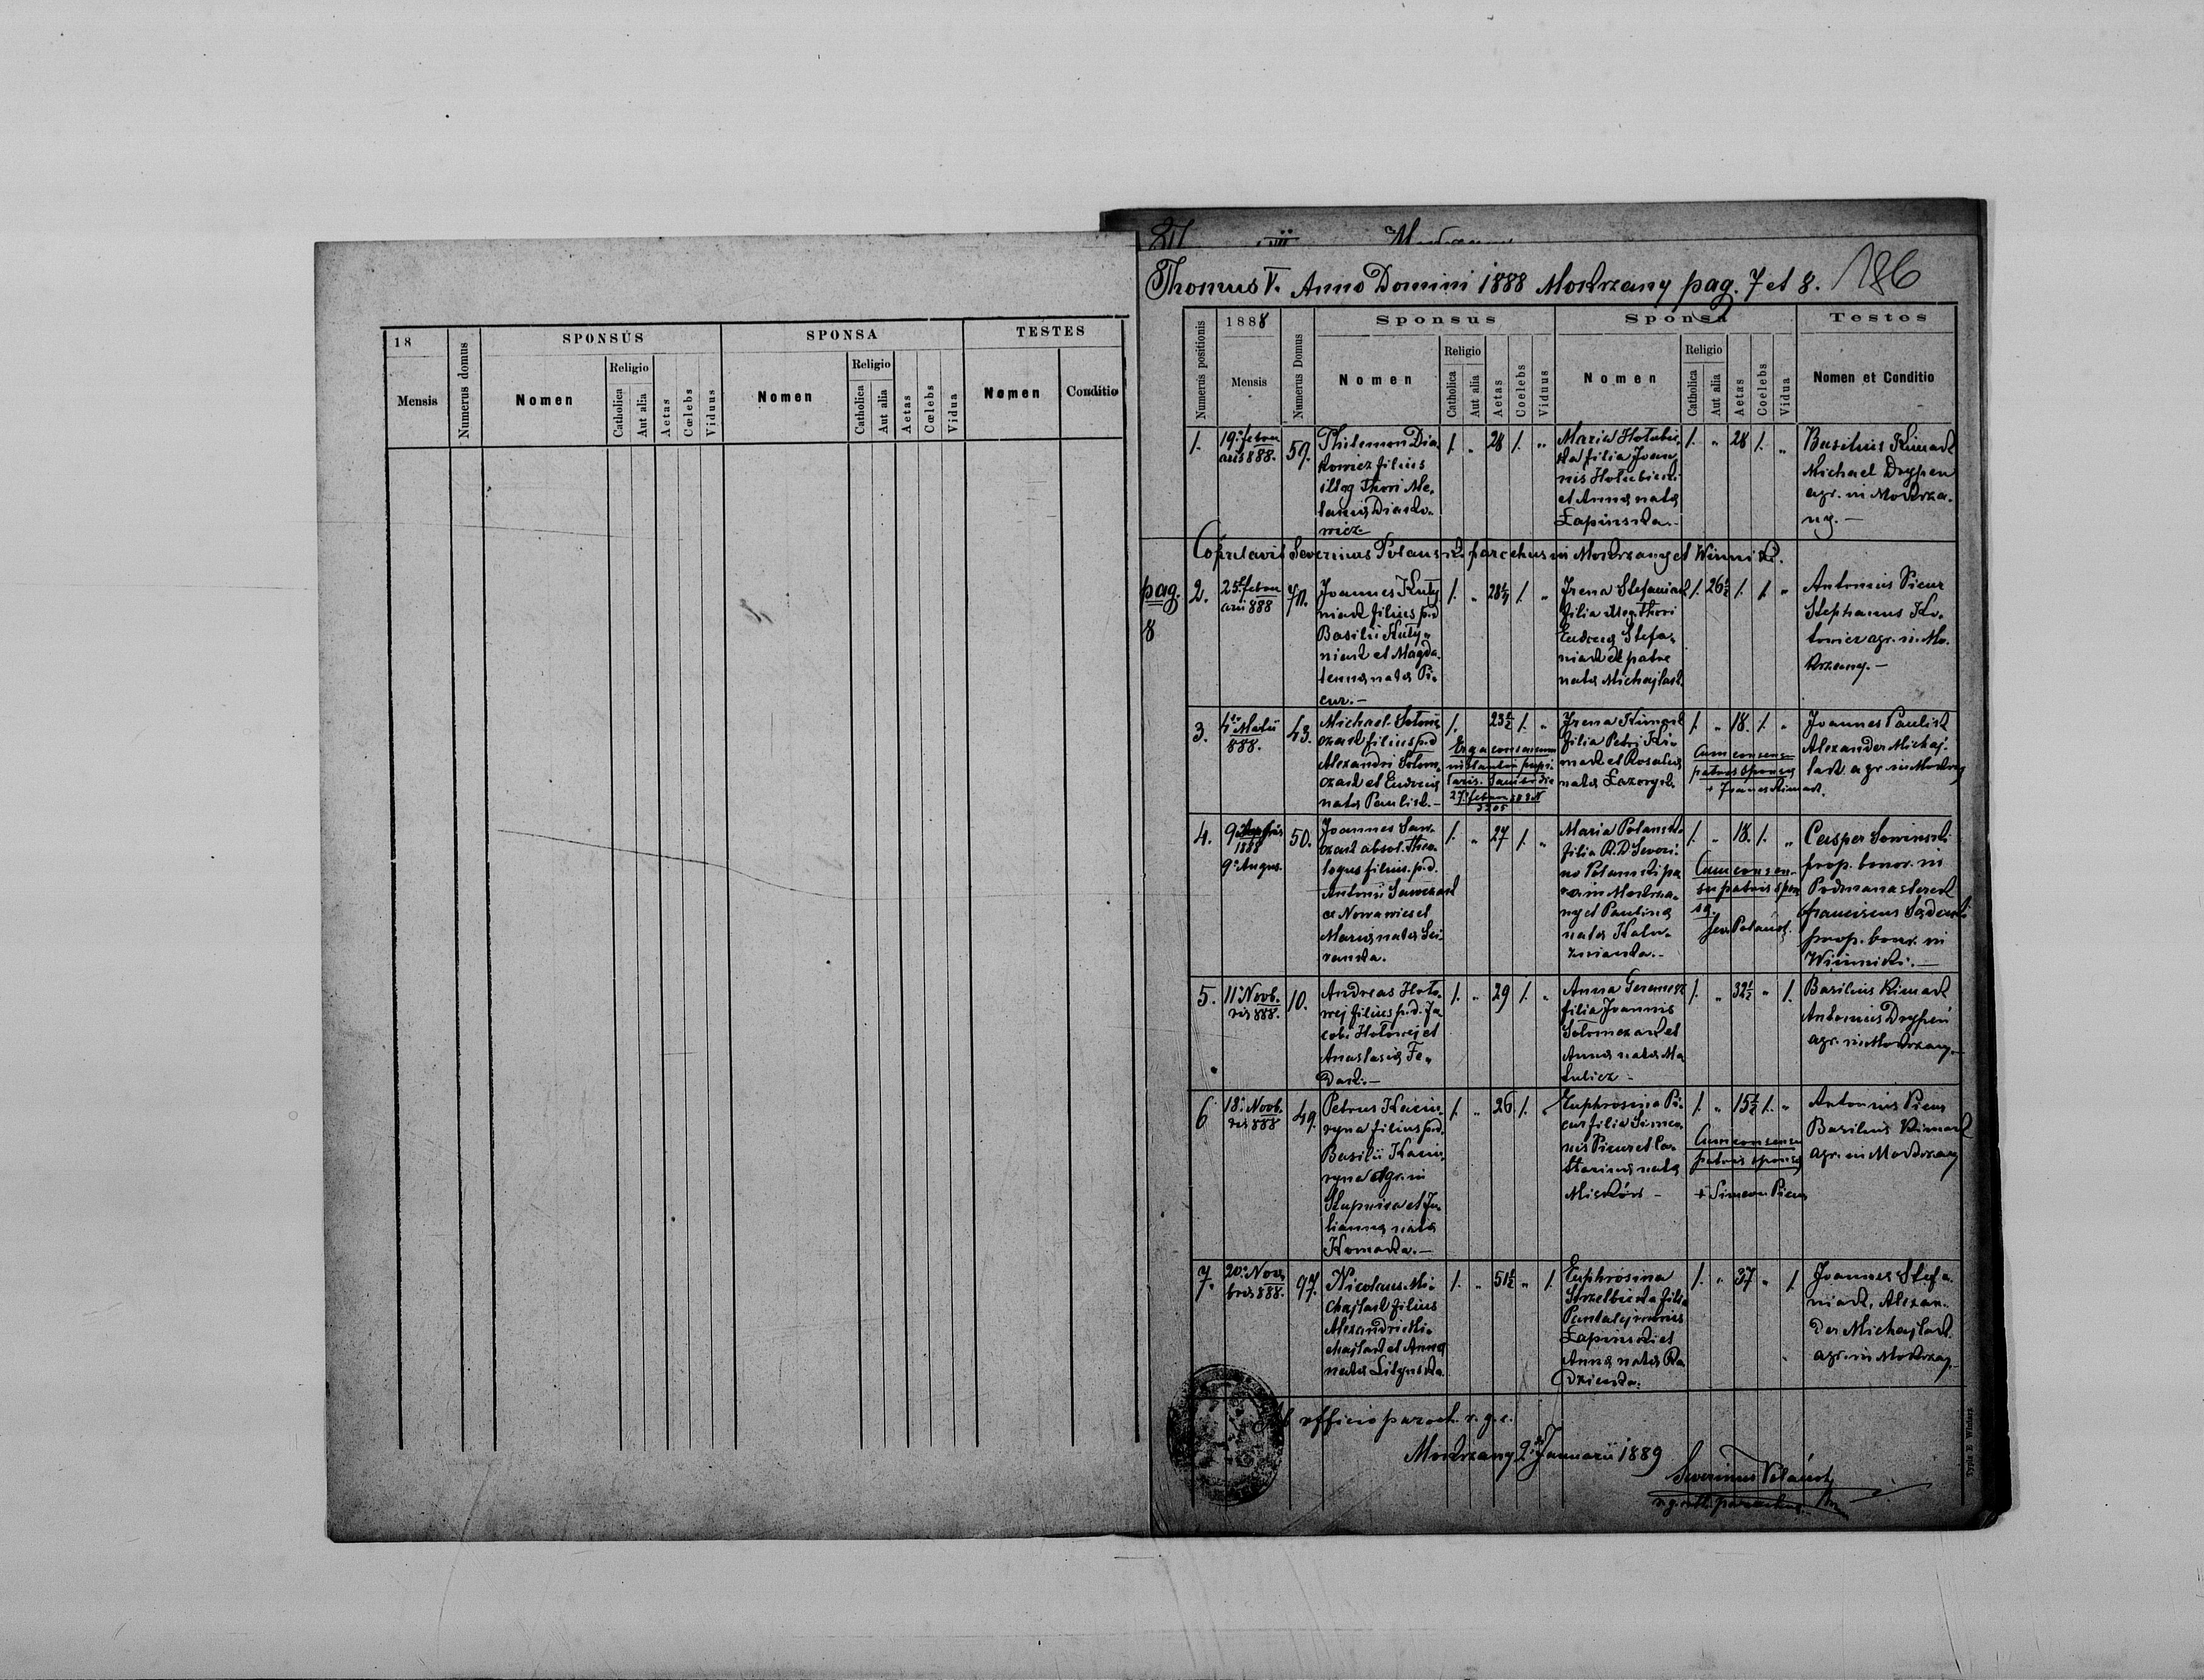 18
Mensis
Numerus domus
SPONSUS
Nomen
Religio
Catholica
Aut alia
Aetas
Cœlebs
Viduus
SPONSA
Nomen
Religio
Catholica
Aut alia
Aetas
Cœlebs
Vidua
TESTES
Nomen
Conditio
Thomus V. Anno Domini 1888 Mokrzany pag. 7 et 8. 186
Numerus positionis
1888
Mensis
Numerus Domus
Sponsus
Nomen
Religio
Catholica
Aut alia
Aetas
Coelebs
Viduus
Sponsa
Nomen
Religio
Catholica
Aut alia
Aetas
Coelebs
Vidua
Testes
Nomen et Conditio
1.
19.
888.
59.
Philemon Dia
kowicz filius
illeg thori Me
laniæ Diako
wicz
1. „ 28 1. „
Maria Hołubic
ka filia Joan
nis Hołubicki
et Anna nata
Łapinska
1. „ 28 1. „
Basilius Kimak
Michael Drypen
agr. in Mokrza
ny. —
Copulavit Severinus Polanski parochus in Mokrzany et Winniki.
pag.
8
2.
25
888
70.
Joannes Kuty
niak filius p.d
Basilii Kuty
niak et Magda
lena nata Pi
cur. —
1. „ 28½ 1. „
Irena Stefaniak
filia illeg thori
Eudocia Stefa
niak de patre
nata Michajlak
1. 26½ 1. 1. „
Antonius Picur
Stephanus Ko
towicz agr. in Mo
krzany. —
3.
4
888.
43.
Michael Sołom
czak filius p.d
Alexandri Sołom
czak et Eudocia
nata Paulik. —
1. 23½ 1. „
27
Irena Kimak
filia Petri Ki
mak et Rosalia
nata
1. „ 18. 1. „
Cum consensu
patris sponsæ
Joannes Paulik
Alexander Michaj
lak agr in Mokrz
4.
9
1888
9 Augus.
50.
Joannes Saw
czak absol. theo
logus filius p.d.
Antonii Sawczak
et
Maria nata
1. „ 27 1. „
Maria Polanska
filia R.D Severi
no Polanski pa
r. in Mokrza
ny et Paulina
nata
1. „ 18. 1. „
Cum consen
su patris spon
sæ.
Sev. Polański
Casper Sowinski
prop. bonor. in
Podmanasterek
Franciscus
prop. bonor. in
Winniki. —
5.
11 Novb.
ris 888.
10.
Andreas Hoło
wej filius p.d. Ja
cobi Hołowej et
Anastasia Fe
dak. —
1. „ 29 1. „
Anna
filia Joannis
Sołomczak et
Anna nata Ma
1. „ 32½ „ 1.
Basilius Kimak
Antonius Drypen
agr. in Mokrzany —
6
18. Novb.
ris 888
49.
Petrus
filius p.d.
Basilii
agr. in
Stupnica et Ju
lianna nata
Komarka. —
1. „ 26 1. „
Euphrosina Pi
cur filia Simeo
nis Picur et Ca
tharina nata
1. „ 15½ 1. „
Cum consensu
patris sponsæ
+ Simeon Picur
Antonius Picur
Basilius Kimak
agr. in Mokrzany
7.
20. Nov
bris 888.
97.
Nicolaus Mi
chajlak filius
Alexandri Mi
chajlak et Anna
nata Litynska
1. „ 51½ „ 1.
Euphrosina
Strzelbicka filia
Łapinski et
Anna nata Ra
dzicka.
1. „ 37 „ 1.
Joannes Stefa
niak, Alexan
der Michajlak
agr. in Mokrzany
officio paroch. r. g. c.
Mokrzany 2 Januarii 1889
Severinus Polański
parochus